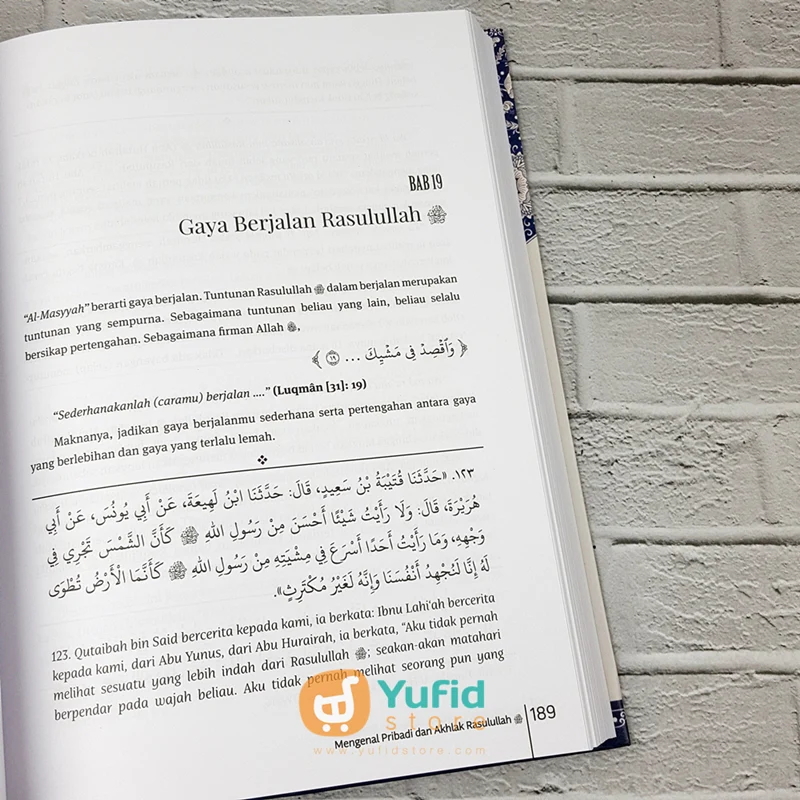 BAB 19
Gaya Berjalan Rasulullah ﷺ
“Al-Masyyah” berarti gaya berjalan. Tuntunan Rasulullah ﷺ dalam berjalan merupakan
tuntunan yang sempurna. Sebagaimana tuntunan beliau yang lain, beliau selalu
bersikap pertengahan. Sebagaimana firman Allah ﷻ,
﴿ وَٱقْصِدْ فِى مَشْيِكَ ... ١٩ ﴾
“Sederhanakanlah (caramu) berjalan ....” (Luqmân [31]: 19)
Maknanya, jadikan gaya berjalanmu sederhana serta pertengahan antara gaya
yang berlebihan dan gaya yang terlalu lemah.
١٢٣. «حَدَّثَنَا قُتَيْبَةُ بْنُ سَعِيدٍ، قَالَ: حَدَّثَنَا ابْنُ لَهِيعَةَ، عَنْ أَبِي يُونُسَ، عَنْ أَبِي
هُرَيْرَةَ، قَالَ: وَلَا رَأَيْتُ شَيْئًا أَحْسَنَ مِنْ رَسُولِ اللهِ ﷺ كَأَنَّ الشَّمْسَ تَجْرِي فِي
وَجْهِهِ، وَمَا رَأَيْتُ أَحَدًا أَسْرَعَ فِي مِشْيَتِهِ مِنْ رَسُولِ اللهِ ﷺ كَأَنَّمَا الْأَرْضُ تُطْوَى
لَهُ إِنَّا لَنُجْهِدُ أَنْفُسَنَا وَإِنَّهُ لَغَيْرُ مُكْتَرِثٍ».
123. Qutaibah bin Said bercerita kepada kami, ia berkata: Ibnu Lahi'ah bercerita
kepada kami, dari Abu Yunus, dari Abu Hurairah, ia berkata, “Aku tidak pernah
melihat sesuatu yang lebih indah dari Rasulullah ﷺ; seakan-akan matahari
berpendar pada wajah beliau. Aku tidak pernah melihat seorang pun yang
Mengenal Pribadi dan Akhlak Rasulullah ﷺ 189
Yufid
store
www.yufidstore.com